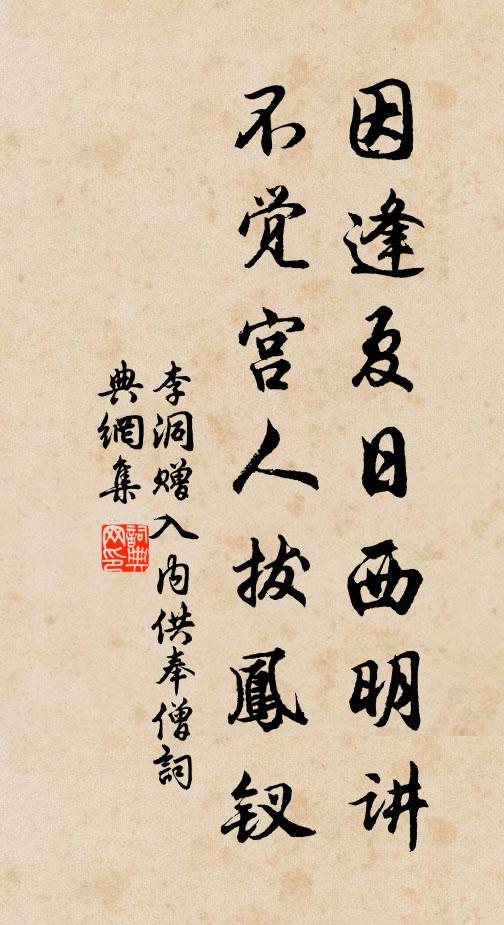 因逢夏日西明讲
不觉宫人拔鳳钗
李洞赠入内供奉僧詞
典網集
詞典網印